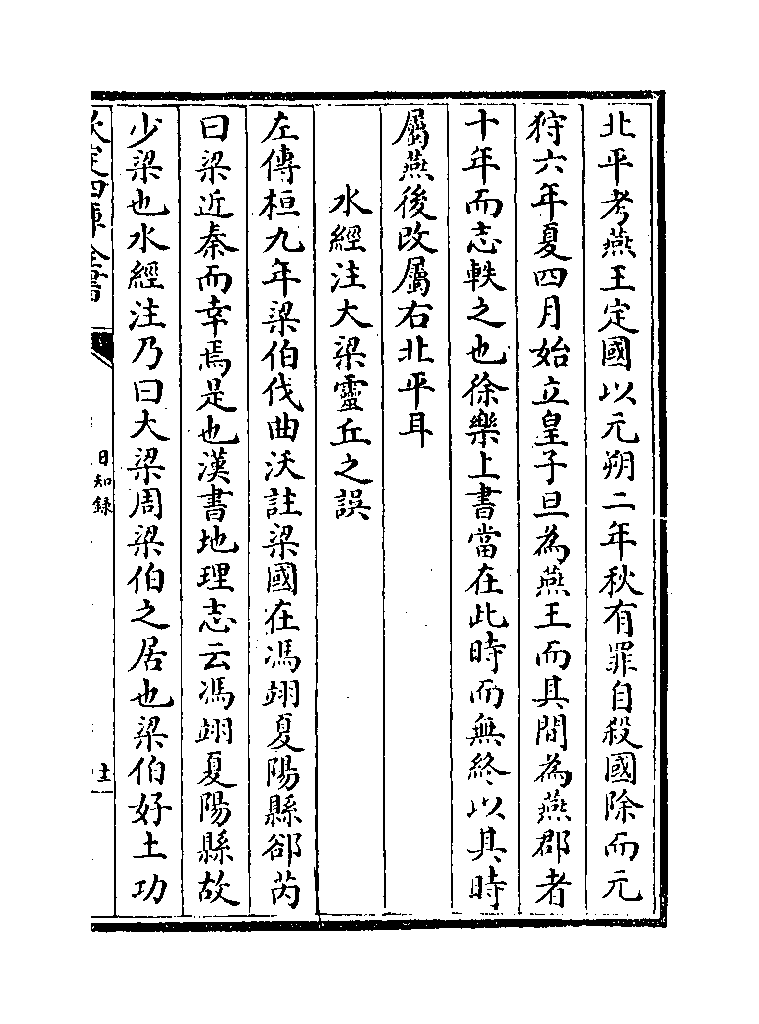 北平考燕王定國以元朔二年秋有罪自殺國除而元
狩六年夏四月始立皇子旦為燕王而其間為燕郡者
十年而志軼之也徐樂上書當在此時而無終以其時
屬燕後改屬右北平耳
水經注大梁靈丘之誤
左傳桓九年梁伯伐曲沃註梁國在馮翊夏陽縣郤芮
曰梁近秦而幸焉是也漢書地理志云馮翊夏陽縣故
少梁也水經注乃曰大梁周梁伯之居也梁伯好土功
欽定四庫全書
日知録